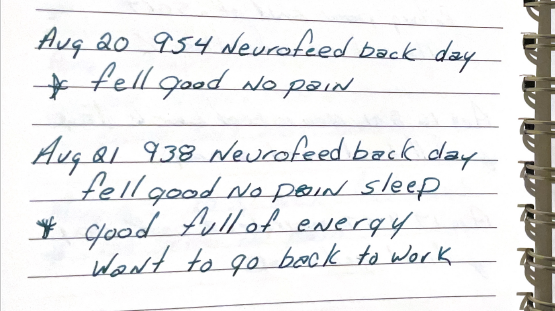 Aug 20 954 Neurofeed back day
* fell good No pain
Aug 21 938 Neurofeed back day
fell good No pain sleep
* good full of energy
Want to go back to work